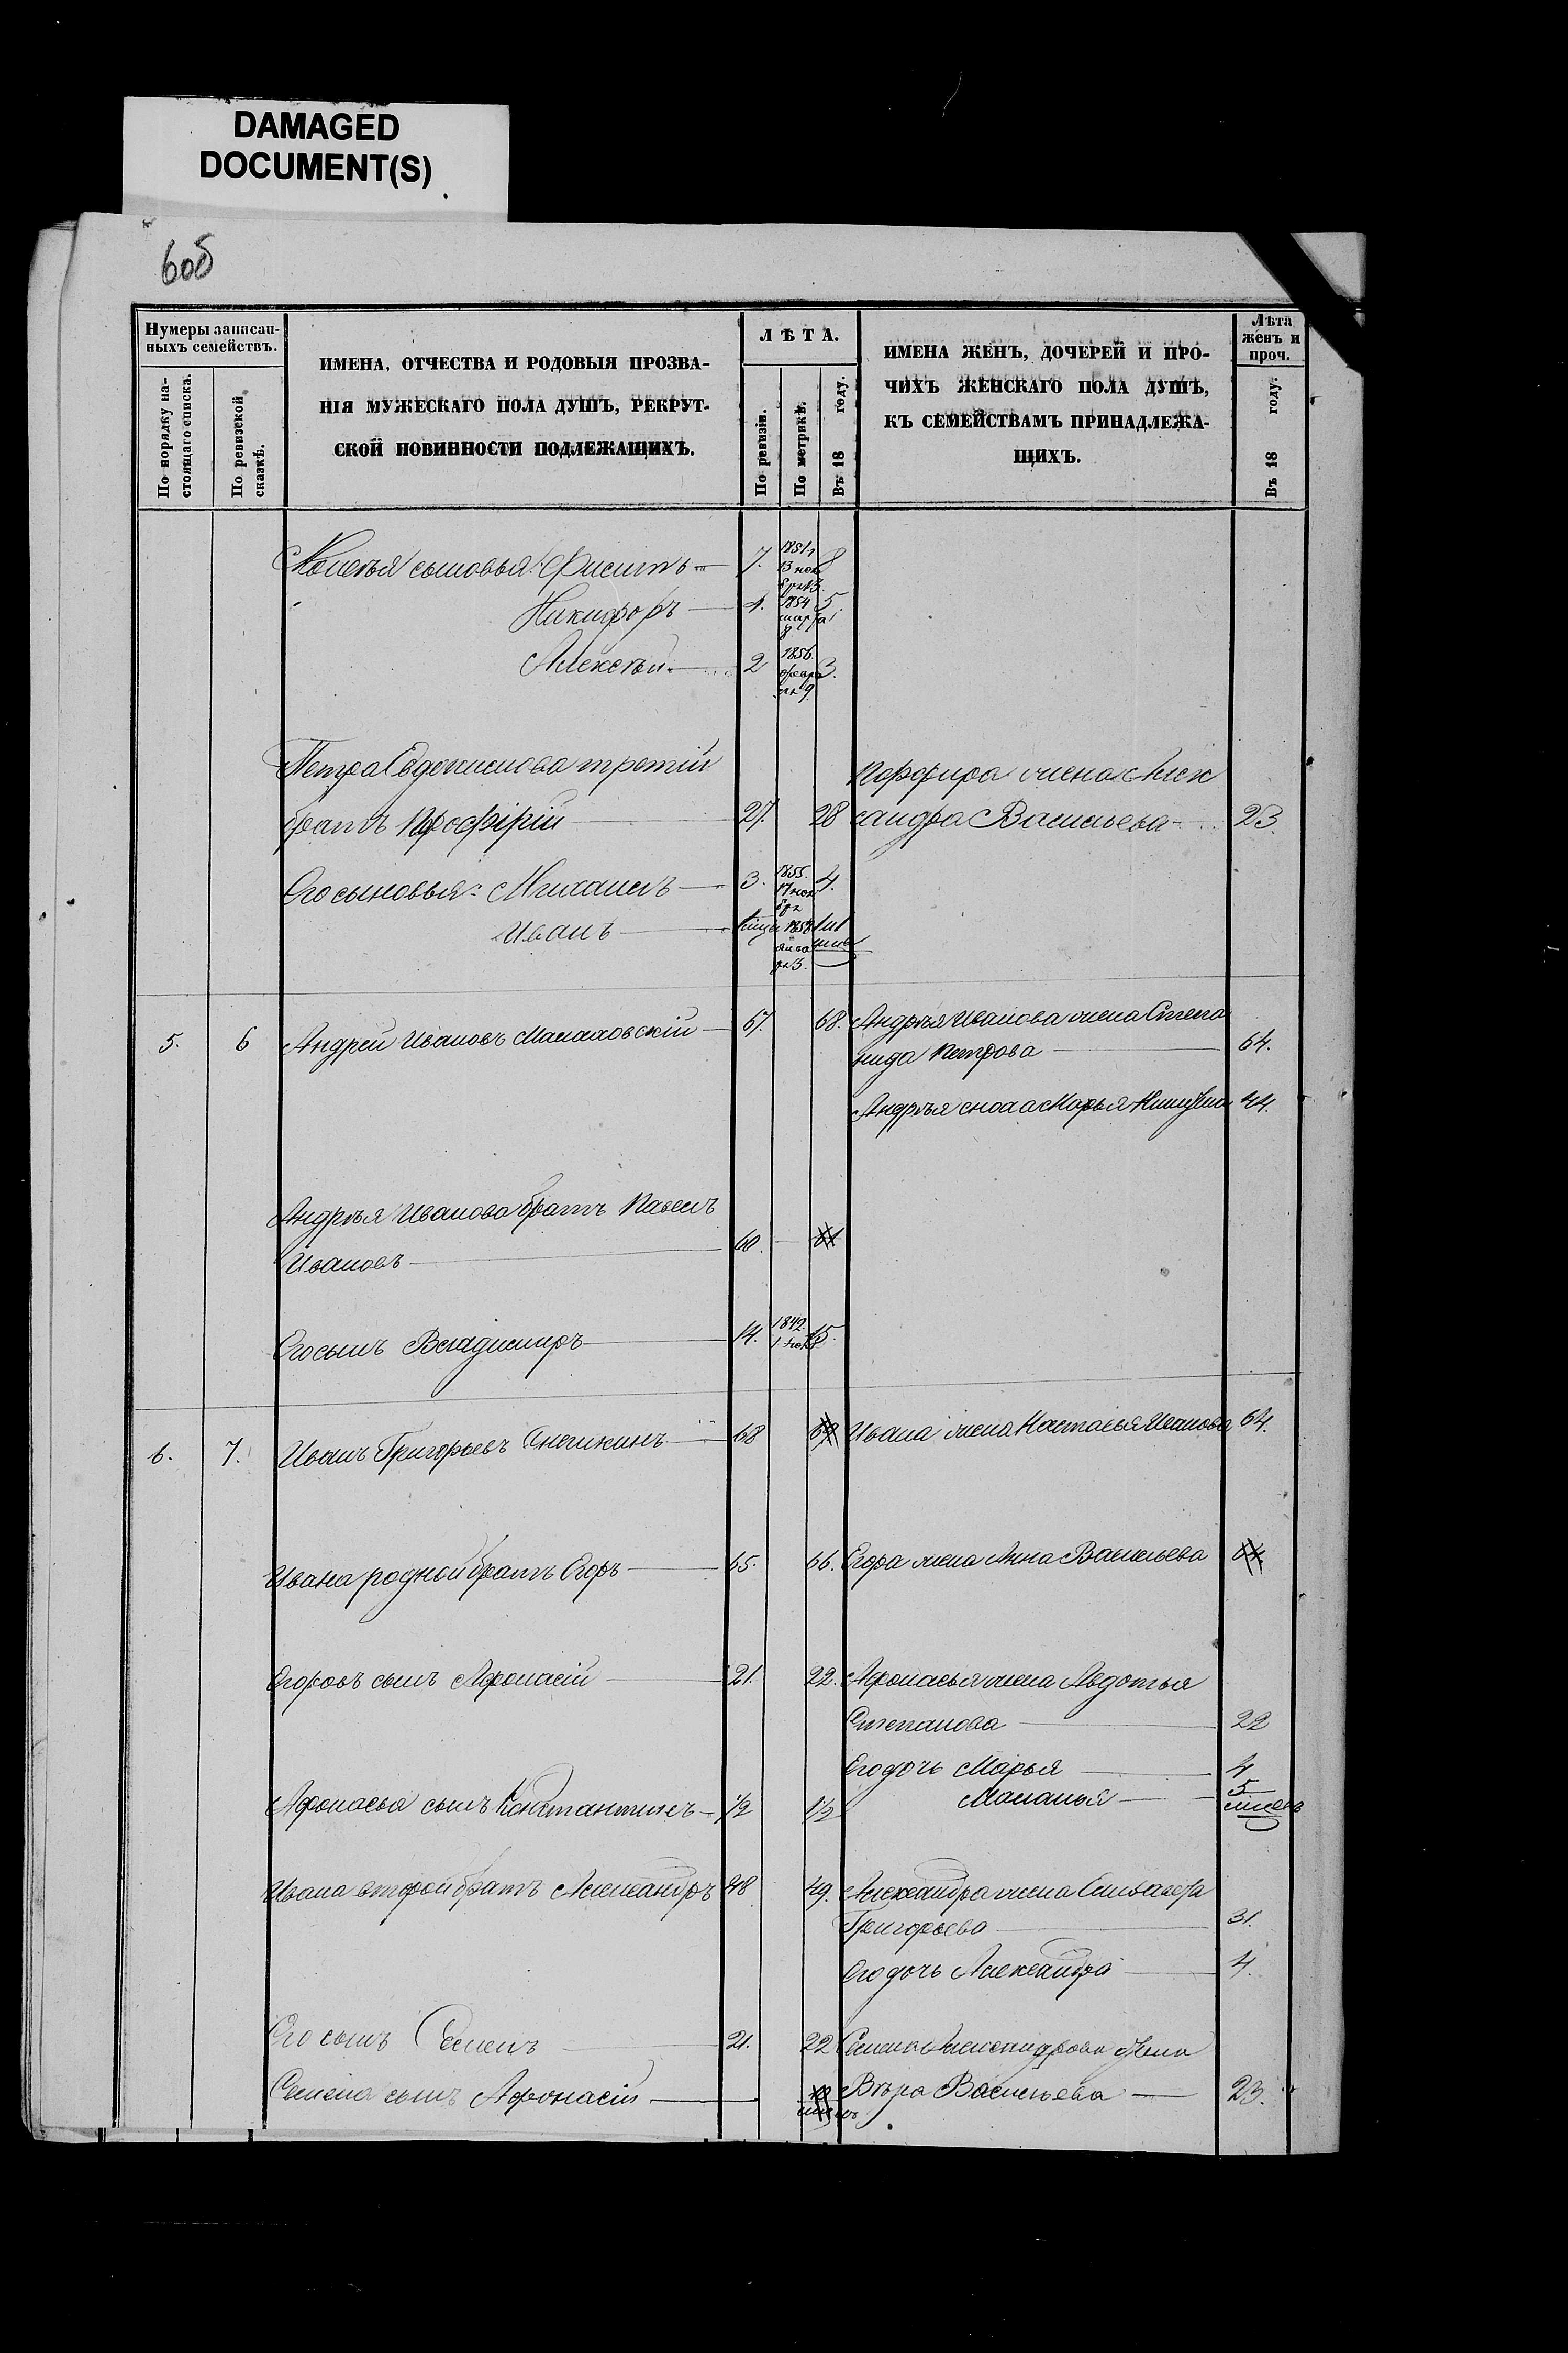 DAMAGED
DOCUMENT(S)
60б
Нумеры записан-
ныхъ семействъ.
По порядку на-
стоящаго списка.
По ревизской
сказкѣ.
ИМЕНА, ОТЧЕСТВА И РОДОВЫЯ ПРОЗВА-
НІЯ МУЖЕСКАГО ПОЛА ДУШЪ, РЕКРУТ-
СКОЙ ПОВИННОСТИ ПОДЛЕЖАЩИХЪ.
ЛѢТА.
По ревизіи.
По метрикѣ.
Въ 18 году.
ИМЕНА ЖЕНЪ, ДОЧЕРЕЙ И ПРО-
ЧИХЪ ЖЕНСКАГО ПОЛА ДУШЪ,
КЪ СЕМЕЙСТВАМЪ ПРИНАДЛЕЖА-
ЩИХЪ.
Лѣта
женъ и
проч.
Въ 18 году.
сыновья: 7. 1851 13 ноя бря 8
Никифоръ 4. 1854 марта 5.
Алексѣй 2 1856. февра ля 9 3.
Петра третій
братъ 27. 28
Порфира жена Алек
сандра Васильева 23.
Его сыновья: Михаилъ 3. 1855. 17 ноя бря 4.
Иванъ 1858 янва ря 3.
5. 6 Андрей Ивановъ Малаховскій 67. 68.
Андрѣя Иванова жена Степа
нида Петрова 64.
Андрѣя сноха Марья 44.
Андрѣя Иванова братъ Павелъ
Ивановъ 60. 61
Его сынъ Владимиръ 14. 1842. 15.
6. 7. Иванъ Григорьевъ Аничкинъ 68 69
Ивана жена Настасья Иванова 64.
Ивана родной братъ Егоръ 65. 66.
Егора жена Анна Васильева 64
Егоровъ сынъ Афонасій 21. 22.
Афонасья жена Авдотья
Степанова 22
Его дочь Марья 4
Маланья 5
Афонасья сынъ Константинъ 1/2 1 1/2
Ивана второй братъ Александръ 48 49.
Александра жена Елизавета
Григорьева 31.
Его дочь Александра 4.
Его сынъ Семенъ 21. 22
Семена Александрова жена
Вѣра Васильева 23.
Семена сынъ Афонасій